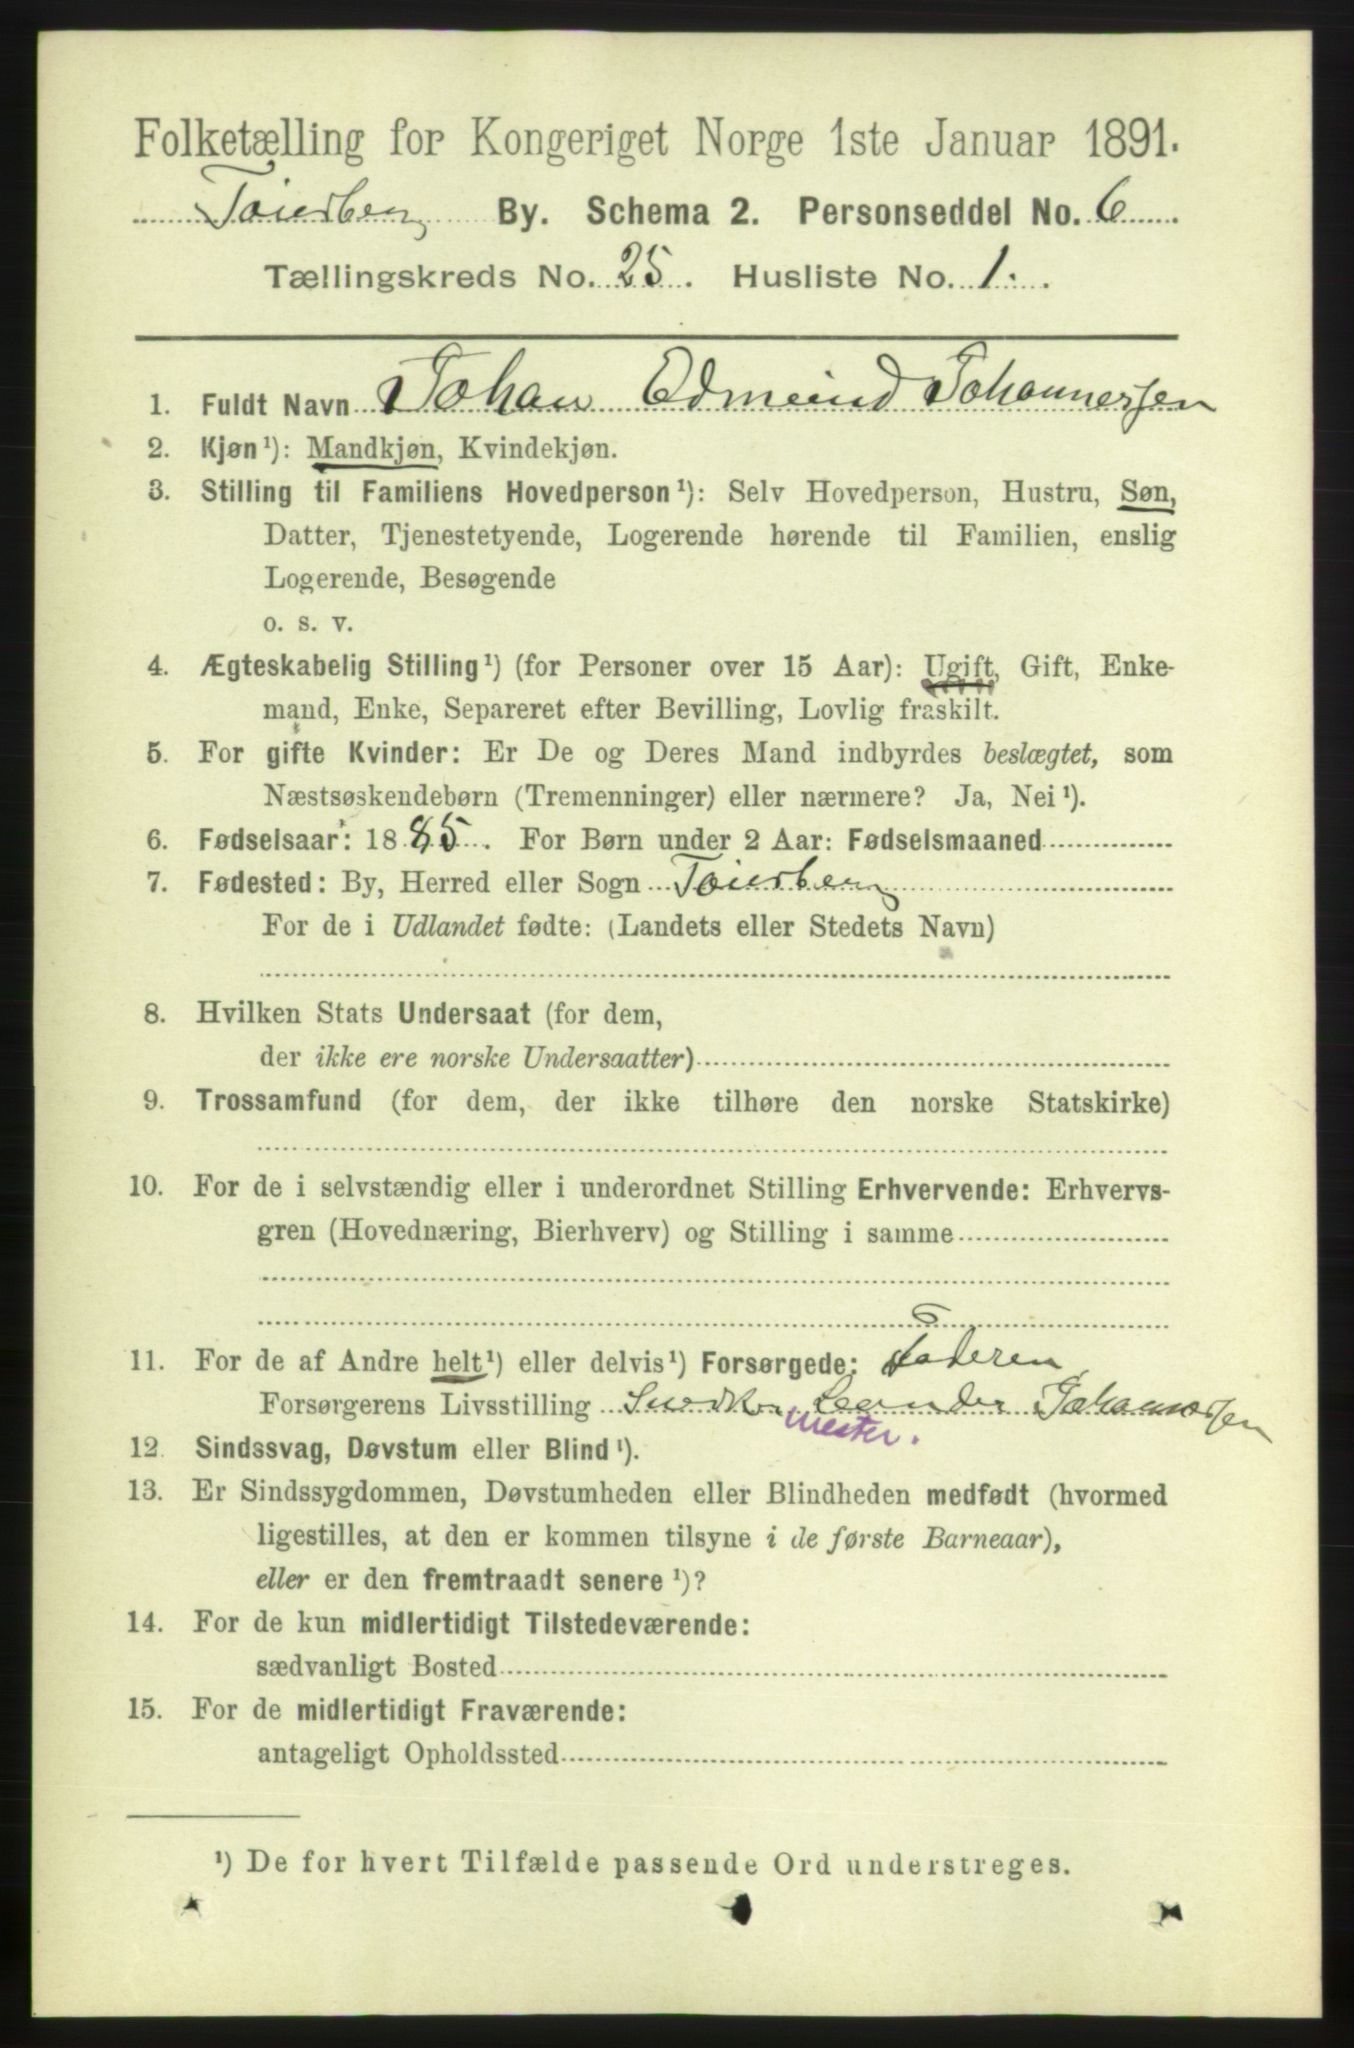 Folketælling for Kongeriget Norge 1ste Januar 1891.
Tønsberg By. Schema 2. Personseddel No. 6
Tællingskreds No. 25. Husliste No. 1.
1. Fuldt Navn Johan Edmund Johannessen
2. Kjøn¹): Mandkjøn, Kvindekjøn.
3. Stilling til Familiens Hovedperson¹): Selv Hovedperson, Hustru, Søn,
Datter, Tjenestetyende, Logerende hørende til Familien, enslig
Logerende, Besøgende
o. s. v.
4. Ægteskabelig Stilling¹) (for Personer over 15 Aar): Ugift, Gift, Enke-
mand, Enke, Separeret efter Bevilling, Lovlig fraskilt.
5. For gifte Kvinder: Er De og Deres Mand indbyrdes beslægtet, som
Næstsøskendebørn (Tremenninger) eller nærmere? Ja, Nei¹).
6. Fødselsaar: 1885. For Børn under 2 Aar: Fødselsmaaned
7. Fødested: By, Herred eller Sogn Tønsberg
For de i Udlandet fødte: (Landets eller Stedets Navn)
8. Hvilken Stats Undersaat (for dem,
der ikke ere norske Undersaatter)
9. Trossamfund (for dem, der ikke tilhøre den norske Statskirke)
10. For de i selvstændig eller i underordnet Stilling Erhvervende: Erhvervs-
gren (Hovednæring, Bierhverv) og Stilling i samme
11. For de af Andre helt¹) eller delvis¹) Forsørgede: Faderen
Forsørgerens Livsstilling Snedker Leander Johannessen
mester.
12. Sindssvag, Døvstum eller Blind¹).
13. Er Sindssygdommen, Døvstumheden eller Blindheden medfødt (hvormed
ligestilles, at den er kommen tilsyne i de første Barneaar),
eller er den fremtraadt senere¹)?
14. For de kun midlertidigt Tilstedeværende:
sædvanligt Bosted
15. For de midlertidigt Fraværende:
antageligt Opholdssted
¹) De for hvert Tilfælde passende Ord understreges.